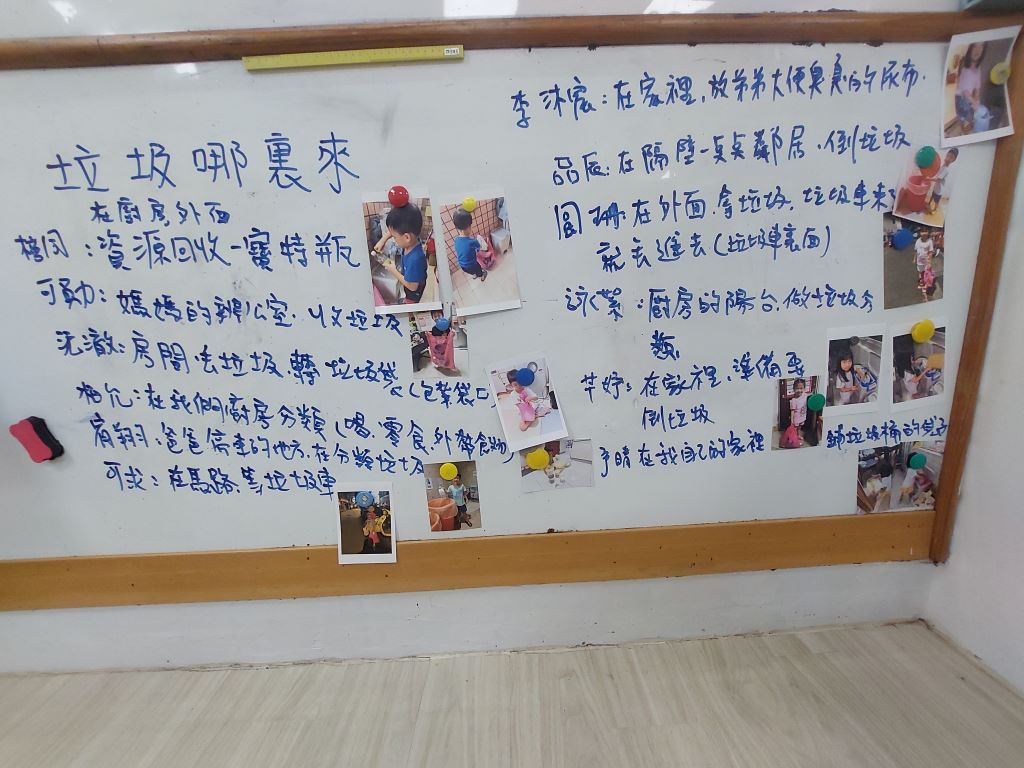 垃圾哪裏來
在廚房外面
楷同：資源回收-寶特瓶
可勳：媽媽的辦公室、收垃圾
房間丟垃圾、轉垃圾袋(包緊袋口)
柏允：在我們廚房分類(喝、零食、外帶食物)
宥翔：爸爸停車的地方,在分類垃圾
可求：在馬路,等垃圾車
李沐宸：在家裡,放弟弟大便臭臭的尿布.
品辰：在隔壁一桌桌鄰居,倒垃圾
圓珊：在外面,拿垃圾,垃圾車來了
就丟進去(垃圾車裏面)
詠棻：廚房的陽台,做垃圾分
類
芊妤：在家裡,準備要
倒垃圾
予晴在我自己的家裡 鋪垃圾桶的袋子